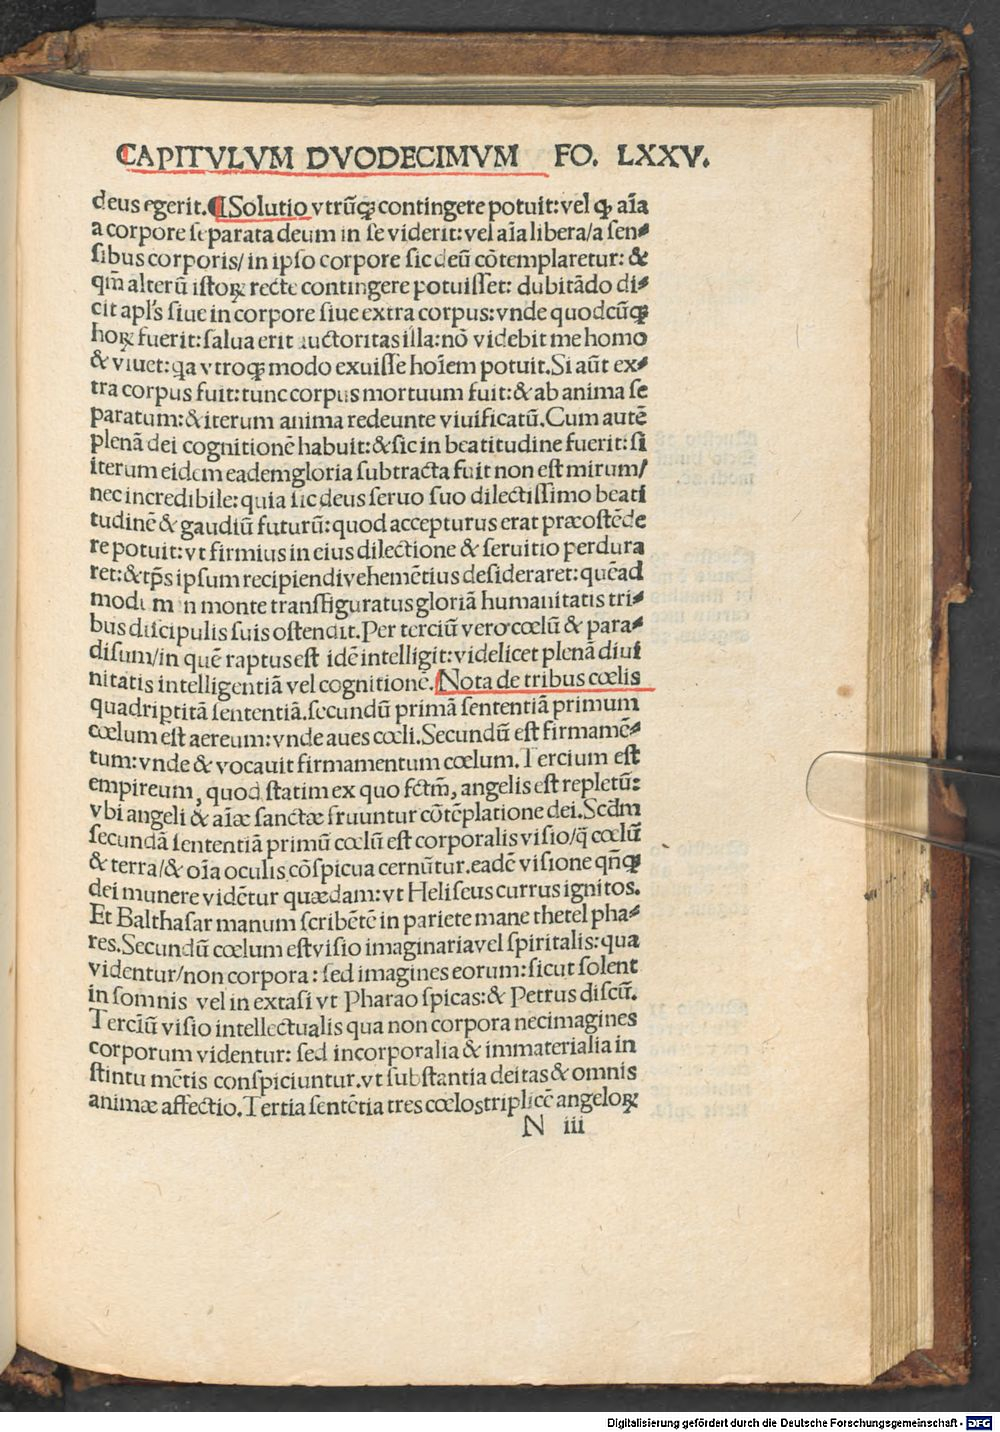 CAPITVLVM DVODECIMVM FO. LXXV.
deus egerit.¶Solutio vtrũqꝫ contingere potuit: vel ꝙ aĩa
a corpore separata deum in se viderit: vel aĩa libera/a sen⸗
sibus corporis/ in ipso corpore sic deũ cõtemplaretur: &
qm̃ alterũ istoꝝ recte contingere potuisset: dubitãdo di⸗
cit apl's siue in corpore siue extra corpus: vnde quodcũqꝫ
hoꝝ fuerit: salua erit auctoritas illa: nõ videbit me homo
& viuet: qa vtroqꝫ modo exuisse hoĩem potuit. Si aũt ex⸗
tra corpus fuit: tunc corpus mortuum fuit: & ab anima se
paratum: & iterum anima redeunte viuificatũ. Cum autẽ
plenã dei cognitionẽ habuit: & sic in beatitudine fuerit: si
iterum eidem eadem gloria subtracta fuit non est mirum/
nec incredibile: quia sic deus seruo suo dilectissimo beati
tudinẽ & gaudiũ futurũ: quod accepturus erat præostẽde
re potuit: vt firmius in eius dilectione & seruitio perdura
ret: & tp̃s ipsum recipiendi vehemẽtius desideraret: quẽad
modum in monte transfiguratus gloriã humanitatis tri⸗
bus discipulis suis ostendit. Per terciũ vero cœlũ & para⸗
disum/in quẽ raptus est idẽ intelligit: videlicet plenã diui
nitatis intelligentiã vel cognitionẽ. Nota de tribus cœlis
quadriptitã sententiã. secundũ primã sententiã primum
cœlum est aereum: vnde aues cœli. Secundũ est firmamẽ⸗
tum: vnde & vocauit firmamentum cœlum. Tercium est
empireum, quod statim ex quo fctm̃, angelis est repletũ:
vbi angeli & aĩæ sanctæ fruuntur cõtẽplatione dei. Scd̃m
secundã sententiã primũ cœlũ est corporalis visio/q̃ cœlũ
& terra/& oĩa oculis cõspicua cernũtur. eadẽ visione qñqꝫ
dei munere vidẽtur quædam: vt Heliseus currus ignitos.
Et Balthasar manum scribẽtẽ in pariete mane thetel pha⸗
res. Secundũ cœlum est visio imaginaria vel spiritalis: qua
videntur/non corpora: sed imagines eorum: sicut solent
in somnis vel in extasi vt Pharao spicas: & Petrus discũ.
Terciũ visio intellectualis qua non corpora nec imagines
corporum videntur: sed incorporalia & immaterialia in
stintu mẽtis conspiciuntur. vt substantia deitas & omnis
animæ affectio. Tertia sentẽtia tres cœlos triplicẽ angeloꝝ
N iii
Digitalisierung gefördert durch die Deutsche Forschungsgemeinschaft - DFG